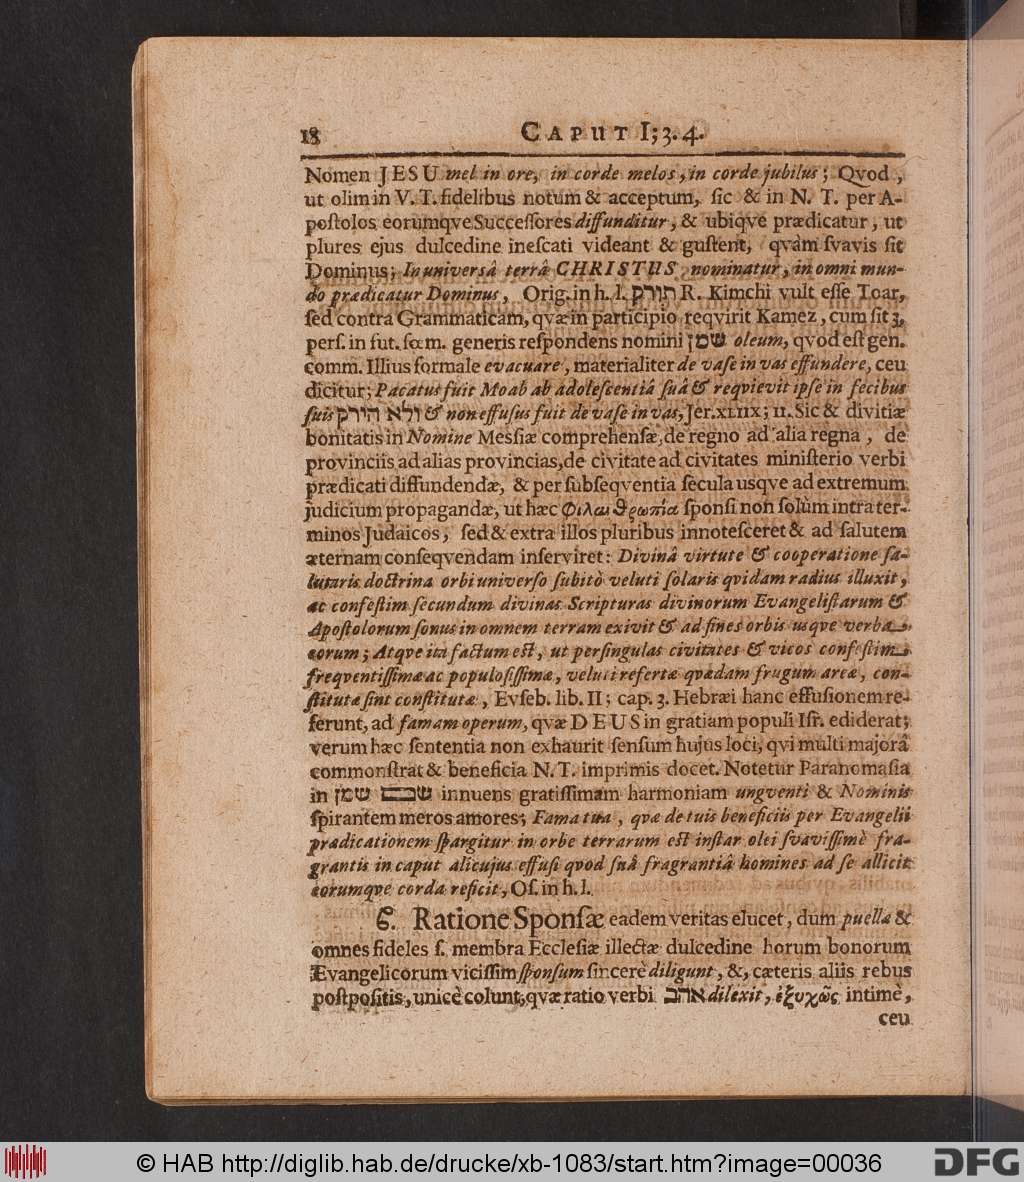 18 CAPUT I; 3. 4.
Nomen JESU mel in ore, in corde melos, in corde jubilus; Qvod,
ut olim in V. T. fidelibus notum & acceptum, ſic & in N. T. per A-
poſtolos eorumqve Succeſſores diffunditur, & ubiqve prædicatur, ut
plures ejus dulcedine ineſcati videant & guſtent, qvàm ſvavis ſit
Dominus; In universâ terrâ CHRISTUS nominatur, in omni mun-
do prædicatur Dominus, Orig. in h. l. תורק R. Kimchi vult eſſe Toar,
ſed contra Grammaticam, qvæ in participio reqvirit Kamez, cum ſit 3.
perſ. in fut. fœm. generis reſpondens nomini שמן oleum, qvod eſt gen.
comm. Illius formale evacuare, materialiter de vaſe in vas effundere, ceu
dicitur; Pacatus fuit Moab ab adoleſcentiâ ſuâ & reqvievit ipſe in fecibus
ſuis ולא הורק & non effuſus fuit de vaſe in vas, Jer. XLIIX; 11. Sic & divitiæ
bonitatis in Nomine Meſſiæ comprehenſæ, de regno ad alia regna, de
provinciis ad alias provincias, de civitate ad civitates miniſterio verbi
prædicati diffundendæ, & per ſubſeqventia ſecula usqve ad extremum
judicium propagandæ, ut hæc Φιλανθρωπία ſponſi non ſolùm intra ter-
minos Judaicos, ſed & extra illos pluribus innoteſceret & ad ſalutem
æternam conſeqvendam inſerviret: Divinâ virtute & cooperatione ſa-
lutaris doctrina orbi univerſo ſubitò veluti ſolaris qvidam radius illuxit,
ac confeſtim ſecundum divinas Scripturas divinorum Evangeliſtarum &
Apoſtolorum ſonus in omnem terram exivit & ad fines orbis usqve verba
eorum; Atqve ita factum eſt, ut per ſingulas civitates & vicos confeſtim
freqventiſſimæ ac populoſiſſimæ, veluti refertæ qvædam frugum areæ, con-
ſtitutæ ſint conſtitutæ, Evſeb. lib. II; cap. 3. Hebræi hanc effuſionem re-
ferunt, ad famam operum, qvæ DEUS in gratiam populi Iſr. ediderat;
verum hæc ſententia non exhaurit ſenſum hujus loci, qvi multi majorâ
commonſtrat & beneficia N. T. imprimis docet. Notetur Paranomaſia
in שמן שם innuens gratiſſimam harmoniam ungventi & Nominis
ſpirantem meros amores; Fama tua, qvæ de tuis beneficiis per Evangelii
prædicationem ſpargitur in orbe terrarum eſt inſtar olei ſvaviſſimè fra-
grantis in caput alicujus effuſi qvod ſuâ fragrantiâ homines ad ſe allicit
eorumqve corda reficit, Oſ. in h. l.
Ratione Sponſæ eadem veritas elucet, dum puella &
omnes fideles ſ. membra Eccleſiæ illectæ dulcedine horum bonorum
Evangelicorum viciſſim ſponſum ſincerè diligunt, &, cæteris aliis rebus
poſtpoſitis, unicè colunt; qvæ ratio verbi אהב dilexit, ἐξυχῶς intimè,
ceu
© HAB http://diglib.hab.de/drucke/xb-1083/start.htm?image=00036
DFG